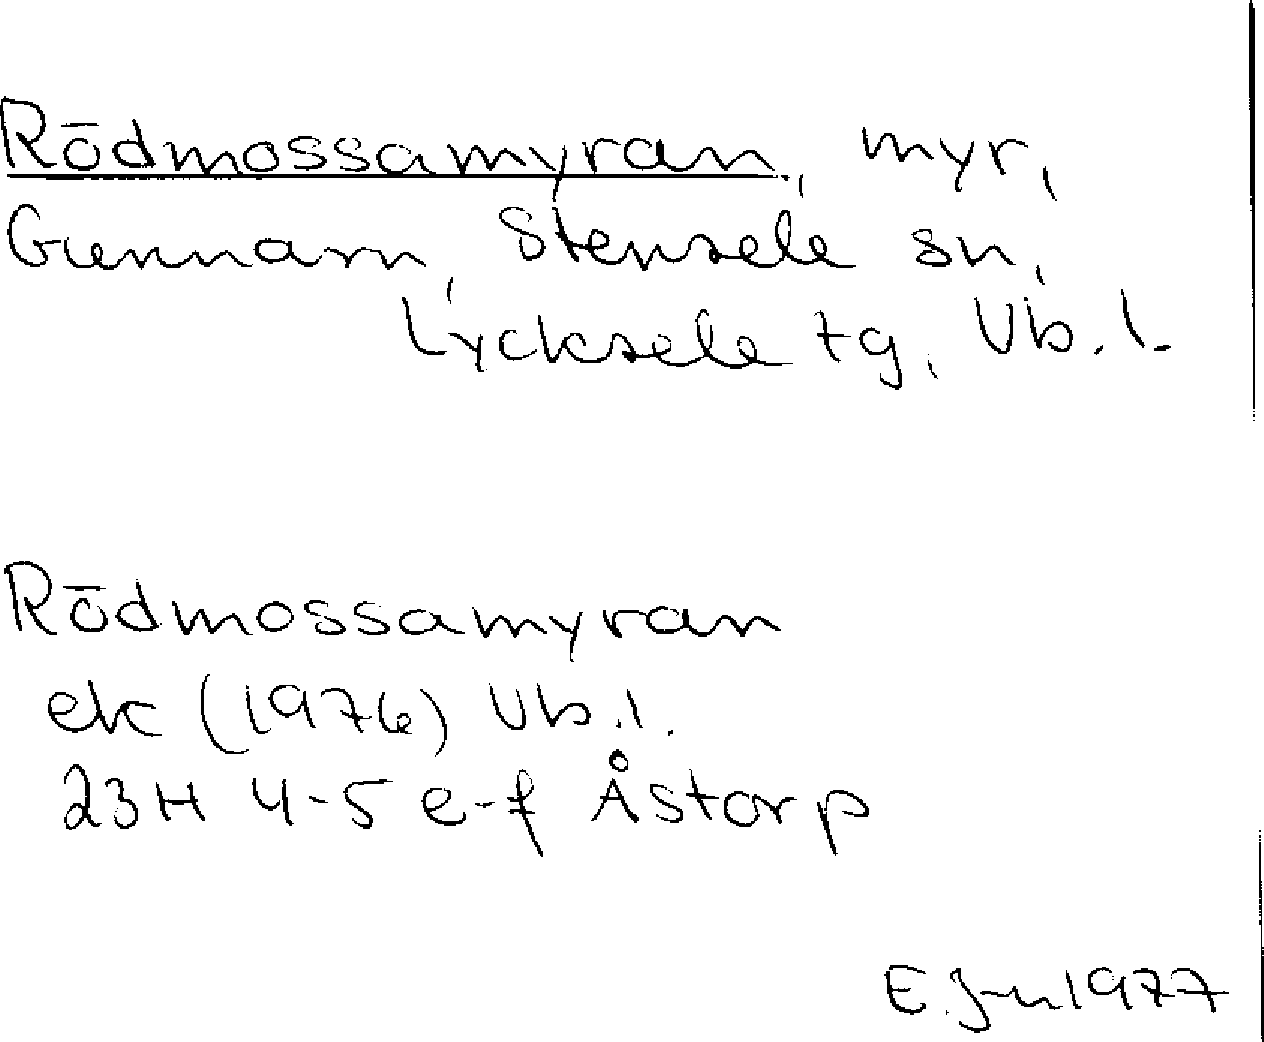 Rödmossamyran, myr,
Gunnarn, Stensele sn,
Lycksele tg, Vb. l.
Rödmossamyran
ek (1976) Vb. l.
23H 4-5 e-f Åstorp
E. J-n 1977